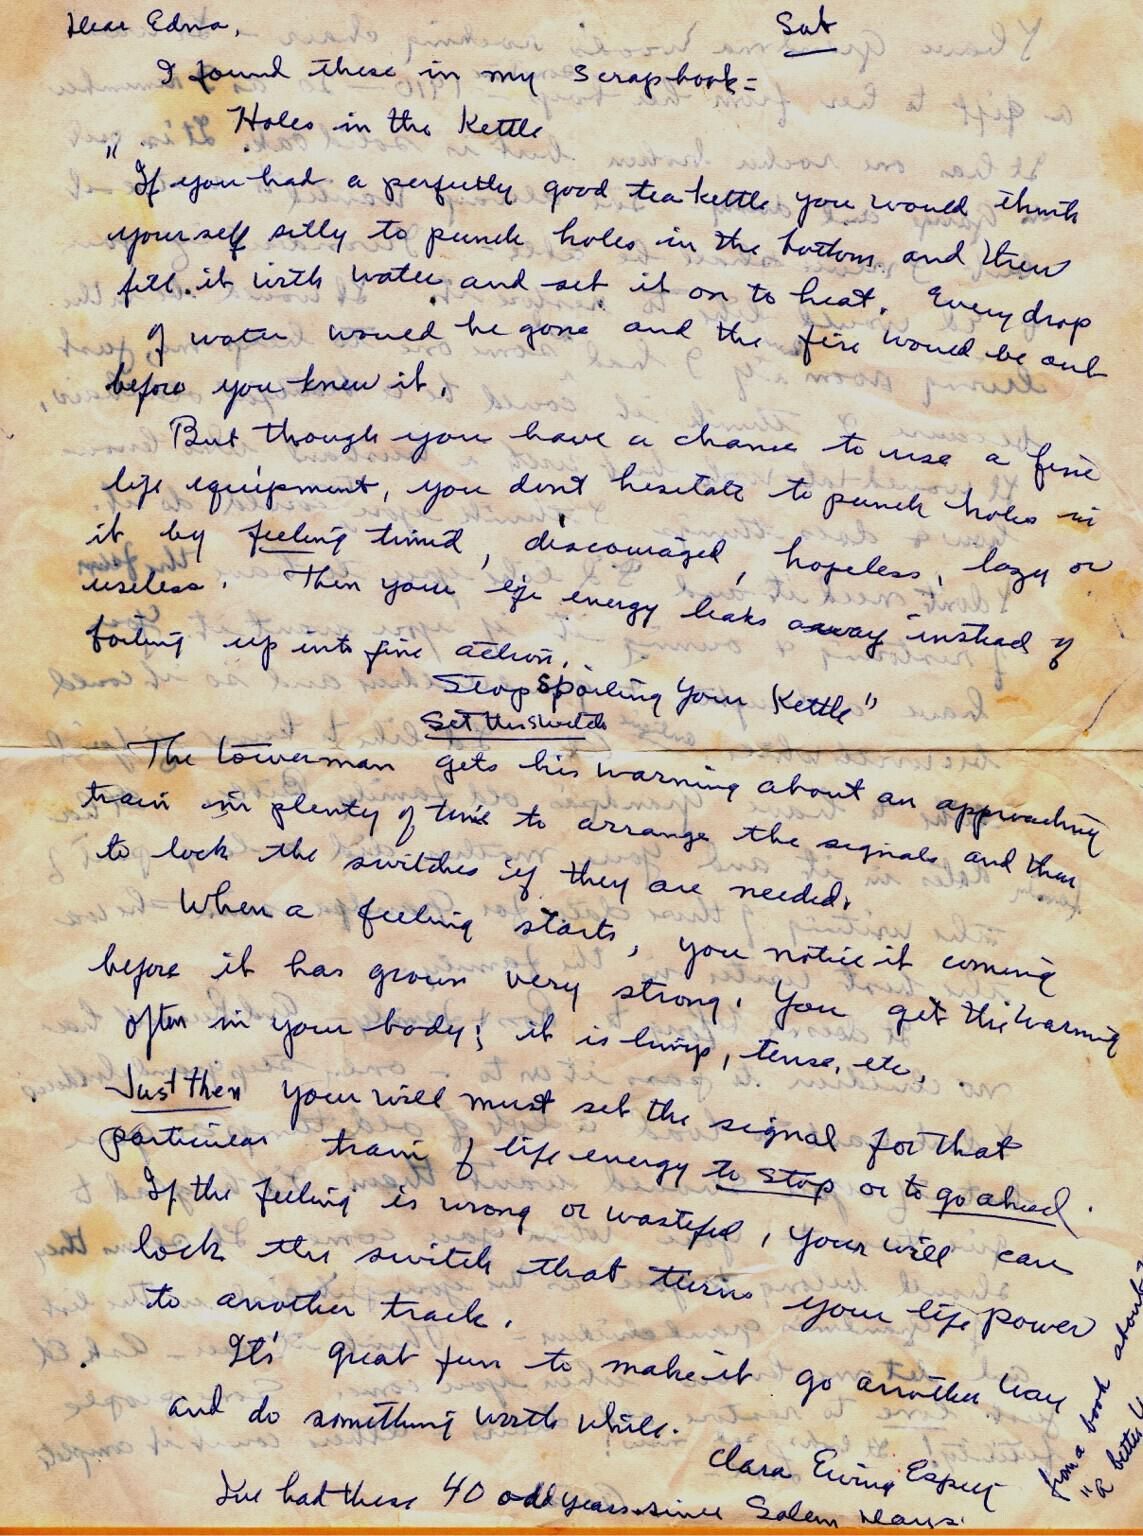 Dear Edna, Sat
I found these in my Scrapbook=
Holes in the Kettle
"If you had a perfectly good teakettle you would think
yourself silly to punch holes in the bottom and then
fill it with water and set it on to heat. Every drop
of water would be gone and the fire would be out
before you knew it.
But though you have a chance to use a fine
life equipment, you don't hesitate to punch holes in
it by feeling timid, discouraged, hopeless, lazy or
useless. Then your life energy leaks away instead of
boiling up into fine action.
Stop Spoiling your Kettle"
Set the Switch
The towerman gets his warning about an approaching
train in plenty of time to arrange the signals and then
to lock the switches if they are needed.
When a feeling starts, you notice it coming
before it has grown very strong. You get the warning
often in your body; it is limp, tense, etc.
Just then your will must set the signal for that
particular train of life energy to stop or to go ahead.
If the feeling is wrong or wasteful, your will can
lock the switch that turns your life power
to another track.
It's great fun to make it go another way
and do something worth while.
Clara Ewing Espey
I've had these 40 odd years since Salem days.
from a book about
"a better